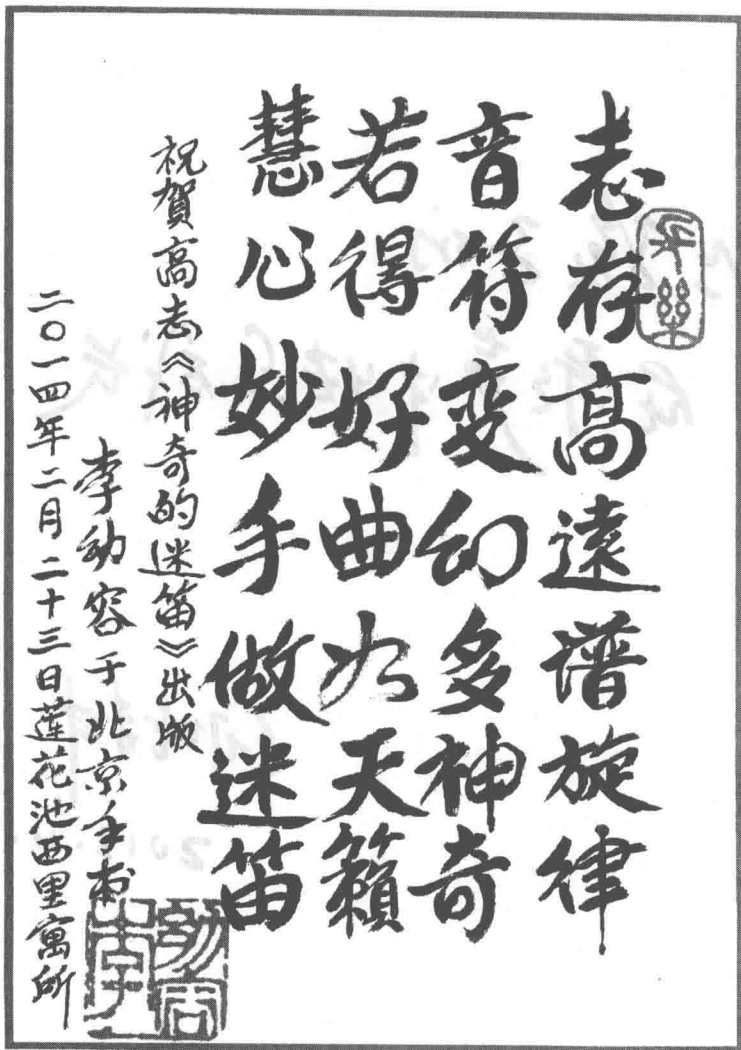 志存高遠譜旋律
音符变幻多神奇
若得好曲如天籟
慧心妙手做迷笛
祝賀高志《神奇的迷笛》出版
李幼容于北京手书
二〇一四年二月二十三日莲花池西里寓所